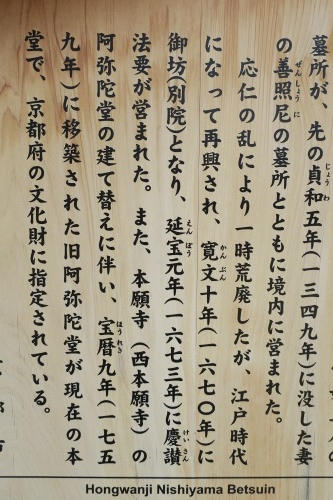 墓所が、先の貞和五年(一三四九年)に没した妻
の善照尼の墓所とともに境内に営まれた。
応仁の乱により一時荒廃したが、江戸時代
になって再興され、寛文十年(一六七〇年)に
御坊(別院)となり、延宝元年(一六七三年)に慶讃
法要が営まれた。また、本願寺(西本願寺)の
阿弥陀堂の建て替えに伴い、宝暦九年(一七五
九年)に移築された旧阿弥陀堂が現在の本
堂で、京都府の文化財に指定されている。
Hongwanji Nishiyama Betsuin